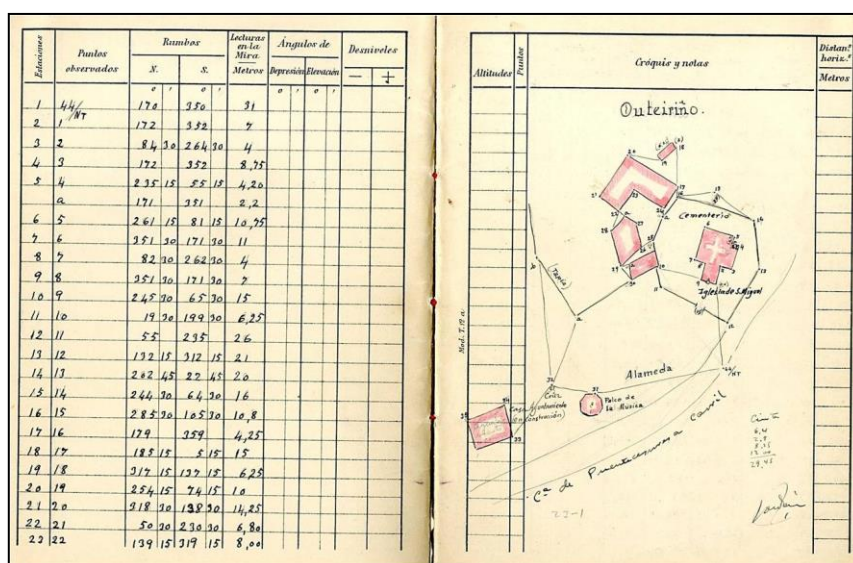 Estaciones Puntos observados Rumbos Lecturas en la Mira Ángulos de Desniveles
N. S. Metros Depresión Elevación — +
o ' o ' o ' o '
1 44/NT 170 350 31
2 1 172 352 7
3 2 84 30 264 30 4
4 3 172 352 8,75
5 4 235 15 55 15 4,20
a 171 351 2,2
6 5 261 15 81 15 10,75
7 6 351 30 171 30 11
8 7 82 30 262 30 4
9 8 351 30 171 30 7
10 9 245 30 65 30 15
11 10 19 30 199 30 6,25
12 11 55 235 26
13 12 132 15 312 15 21
14 13 202 45 22 45 20
15 14 244 30 64 30 16
16 15 285 30 105 30 10,8
17 16 179 359 4,25
18 17 185 15 5 15 15
19 18 317 15 137 15 6,25
20 19 254 15 74 15 10
21 20 318 30 138 30 14,25
22 21 50 30 230 30 6,80
23 22 139 15 319 15 8,00
Altitudes Puntos Cróquis y notas Distan.ª horiz.ª
Metros
Outeiriño.
Cementerio
Iglesia de S. Miguel
(Tapia)
Mod. T. 19 a.
Alameda
44/NT
Cruz
Palco de
la Música
Casa Ayuntamiento
(en construcción)
Cª de Puentecesures a Carril
23-1